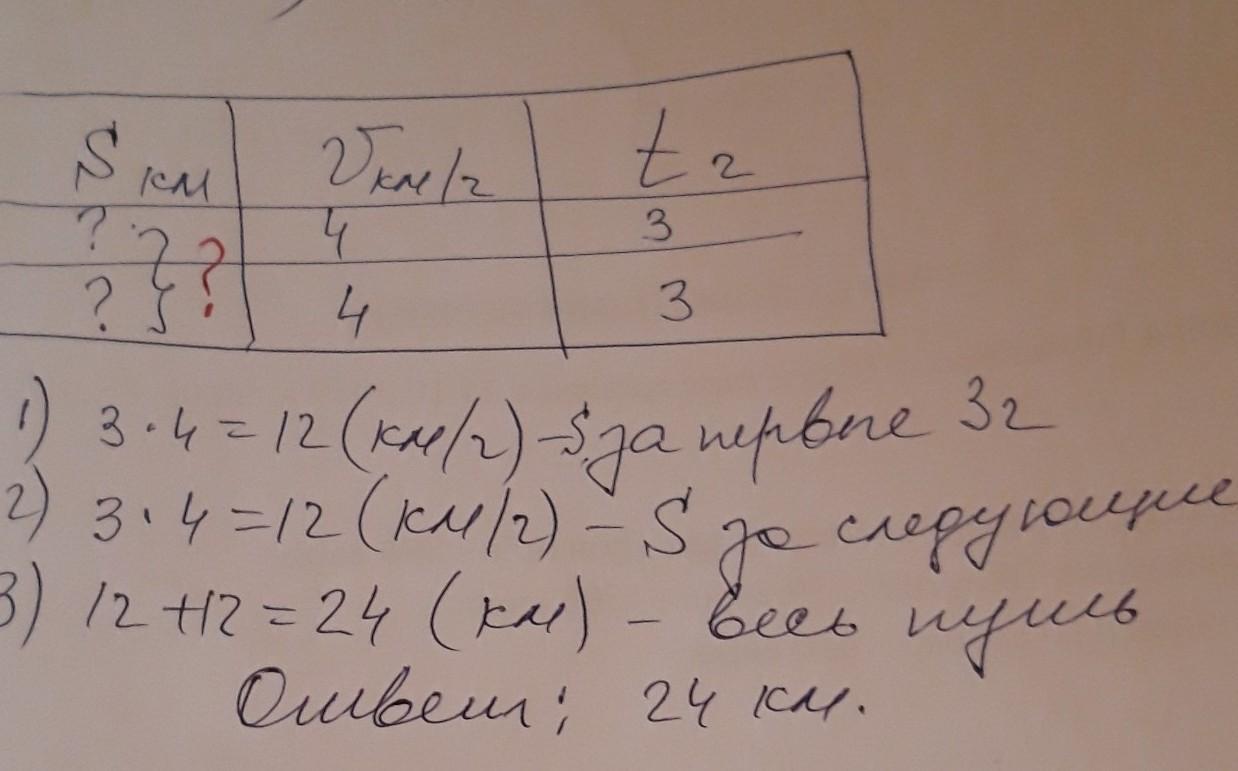 S км V км/г t г
? } ? 4 3
? 4 3
1) 3 · 4 = 12 (км/г) – S за первые 3г
2) 3 · 4 = 12 (км/г) – S за следующие
3) 12 + 12 = 24 (км) – весь путь
Ответ: 24 км.